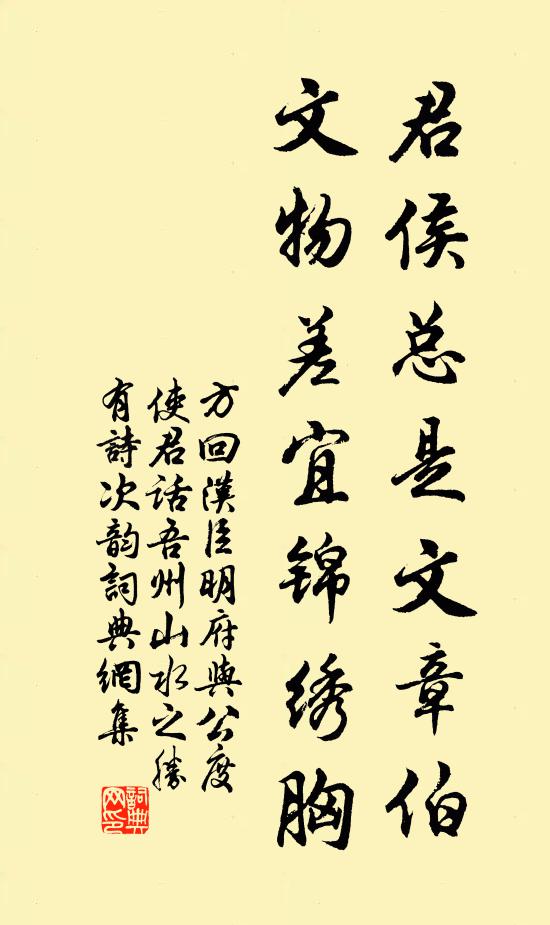 君侯总是文章伯
文物差宜锦绣胸
方回漢臣明府與公度
使君话吾州山水之勝
有詩次韵詞典網集
詞典
网印